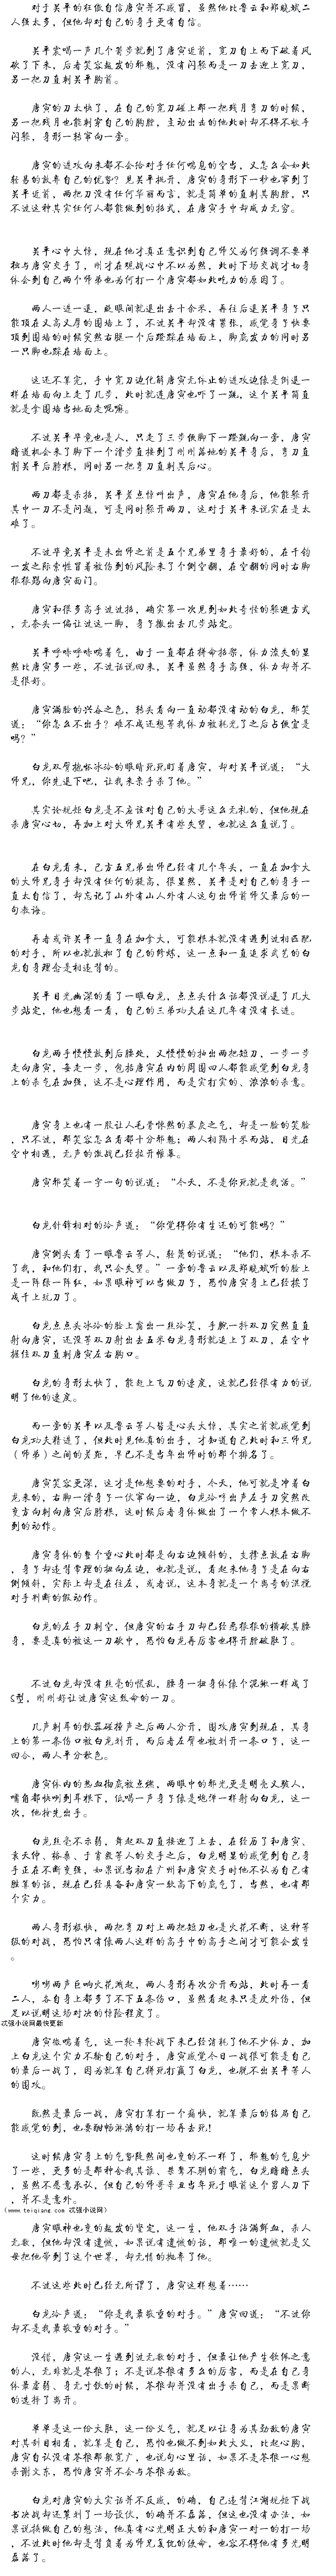 对于关平的狂傲自信唐寅并不感冒，虽然他比鲁云和郑晓斌二
人强太多，但他却对自己的身手更有自信。
关平察喝一声几个箭步就到了唐寅近前，宽刀自上而下破着风
砍了下来，后者笑容越发的邪魅，没有闪躲而是一刀去迎上宽刀，
另一把刀直刺关平胸前。
唐寅的刀太快了，在自己的宽刀碰上那一把残月弯刀的时候，
另一把残月也能刺穿自己的胸膛，主动出击的他此时却不得不收手
闪躲，身形一转窜向一旁。
唐寅的进攻向来都不会给对手任何喘息的空当，又怎么会如此
轻易的放弃自己的优势？见关平挑开，唐寅的身形下一秒也窜到了
关平近前，两把刀没有任何华丽而言，就是简单的直刺其胸膛，只
不过这种其实任何人都能做到的招式，在唐寅手中却威力无穷。
关平心中大惊，现在他才真正意识到自己师父为何强调不要单
独与唐寅交手了，刚才在观战心中不以为然，此时下场交战才切身
体会到自己两个师弟也为何打一个唐寅都如此吃力的原因了。
两人一进一退，眨眼间就退出去十余米，再往后退关平身子只
能顶在又高又厚的围墙上了，不过关平却没有紧张，感觉身子快要
顶到围墙的时候突然右腿一个后蹬踩在墙面上，脚底发力的同时另
一只脚也踩在墙面上。
这还不算完，手中宽刀边化解唐寅无休止的进攻边像是倒退一
样在墙面向上走了几步，此时就连唐寅也吓了一跳，这个关平简直
就是拿围墙当地面走呢嘛。
不过关平毕竟也是人，只走了三步便脚下一蹬跳向一旁，唐寅
暗道机会来了脚下一个滑步直接到了刚刚落地的关平身后，弯刀直
削关平后脖根，同时另一把弯刀直刺其后心。
两刀都是杀招，关平差点惊叫出声，唐寅在他身后，他能躲开
其中一刀不是问题，可是同时躲开两刀，这对于关平来说实在是太
难了。
不过毕竟关平是未出师之前是五个兄弟里身手最好的，在千钧
一发之际索性冒着被伤到的风险来了个倒空翻，在空翻的同时右脚
狠狠踢向唐寅面门。
唐寅和很多高手过过招，确实第一次见到如此奇怪的躲避方式
，无奈头一偏让过这一脚，身子撤出去几步站定。
关平呼哧呼哧喘着气，由于一直都在拼命招架，体力流失的显
然比唐寅多一些，不过话说回来，关平虽然身手高强，体力却并不
是很好。
唐寅满脸的兴奋之色，转头看向一直动都没有动的白龙，邪笑
道：“你怎么不出手？难不成还想等我体力被耗光了之后占便宜是
吗？”
白龙双臂抱怀冰冷的眼睛死死盯着唐寅，却对关平说道：“大
师兄，你先退下吧，让我来亲手杀了他。”
其实论规矩白龙是不应该对自己的大哥这么无礼的，但他现在
杀唐寅心切，再加上对大师兄关平有些失望，也就这么直说了。
在白龙看来，己方五兄弟出师已经有几个年头，一直在加拿大
的大师兄身手却没有任何的提高，很显然，关平是对自己的身手一
直太自信了，却忘记了山外有山人外有人这句出师前师父最后的一
句教诲。
再者或许关平一直身在加拿大，可能根本就没有遇到过相匹配
的对手，所以也就放松了自己的修炼，这一点和一直追求武艺的白
龙自身理念是相违背的。
关平目光幽深的看了一眼白龙，点点头什么话都没说退了几大
步站定，他也想看一看，自己的三弟功夫在这几年有没有长进。
白龙两手慢慢放到后腰处，又慢慢的抽出两把短刀，一步一步
走向唐寅，每走一步，包括唐寅在内的周围四人都能感觉到白龙身
上的杀气在加强，这不是心理作用，而是实打实的、浓浓的杀意。
唐寅身上也有一股让人毛骨悚然的暴戾之气，却是一脸的笑脸
，只不过，那笑容怎么看都十分邪魅；两人相隔十米而站，目光在
空中相遇，无声的激战已经拉开帷幕。
唐寅邪笑着一字一句的说道：“今天，不是你死就是我活。”
白龙针锋相对的冷声道：“你觉得你有生还的可能吗？”
唐寅侧头看了一眼鲁云等人，轻蔑的说道：“他们，根本杀不
了我，和他们打，我只会失望。”一旁的鲁云以及郑晓斌听的脸上
是一阵绿一阵红，如果眼神可以当做刀子，恐怕唐寅身上已经被了
成千上玩刀了。
白龙点点头冰冷的脸上露出一丝冷笑，手腕一抖双刀突然直直
射向唐寅，还没等双刀射出去五米白龙身形就追上了双刀，在空中
握住双刀直刺唐寅左右胸口。
白龙的身形太快了，能赶上飞刀的速度，这就已经很有力的说
明了他的速度。
而一旁的关平以及鲁云等人皆是心头大惊，其实之前就感觉到
白龙功夫精进了，但此时见他真的出手，才知道自己此时和三师兄
（师弟）之间的差距，早已不是当年出师时的那个排名了。
唐寅笑容更深，这才是他想要的对手，今天，他可就是冲着白
龙来的，右脚一滑身子一伏窜向一边，白龙冷哼出声左手刀突然改
变方向刺向唐寅后脖根，这时候后者身体做出了一个常人根本做不
到的动作。
唐寅身体的整个重心此时都是向右边倾斜的，支撑点放在右脚
，身子却违背常理的扭向左边，也就是说，看起来他身子是在向右
侧倾斜，实际上却是在往左，或者说，这本身就是一个高奇的混搅
对手判断的假动作。
白龙的左手刀刺空，但唐寅的右手刀却已经恶狠狠的横砍其腰
身，要是真的被这一刀砍中，恐怕白龙再厉害也得开膛破肚了。
不过白龙却没有丝毫的慌乱，腰身一扭身体像个泥鳅一样成了
S型，刚刚好让过唐寅这致命的一刀。
几声刺耳的铁器碰撞声之后两人分开，围攻唐寅到现在，其身
上的第一条伤口被白龙划开，而后者左臂也被划开一条口子，这一
回合，两人平分秋色。
唐寅体内的热血彻底被点燃，两眼中的邪光更是明亮又骇人，
嘴角都快咧到耳根下，低喝一声身子像是炮弹一样射向白龙，这一
次，他抢先出手。
白龙丝毫不示弱，举起双刀直接迎了上去，在经历了和唐寅、
袁天仲、格桑、于官敏等人的交手之后，白龙明显的感觉到自己身
手正在不断变强，如果说当初在广州和唐寅交手时他不认为自己有
胜算的话，现在已经具备和唐寅一较高下的底气了，当然，也有那
个实力。
两人身形极快，两把弯刀对上两把短刀也是火花不断，这种等
级的对战，恐怕只有像两人这样的高手中的高手之间才可能会发生
。
嘭嘭两声巨响火花溅起，两人身形再次分开而站，此时再一看
二人，各自身上都多了不下五条伤口，虽然看起来只是皮外伤，但
足以说明这场对决的惊险程度了。
忒强小说网最快更新
唐寅微喘着气，这一轮车轮战下来已经消耗了他不少体力，加
上白龙这个实力不输自己的对手，唐寅感觉今日一战很可能是自己
的最后一战了，因为就算自己拼死打赢了白龙，也脱不出关平等人
的围攻。
既然是最后一战，唐寅打算打一个痛快，就算最后的结局自己
能感觉的到，也要酣畅淋漓的打一场再去死！
这时候唐寅身上的气势陡然间也变的不一样了，邪魅的气息少
了一些，更多的是那种舍我其谁、桀骜不驯的霸气，白龙暗暗点头
，虽然不愿意承认，但自己的师哥辛丑当年死于眼前这个男人刀下
，并不是意外。
（www.teiqiang.com 忒强小说网）
唐寅眼神也变的越发的坚定，这一生，他双手沾满鲜血，杀人
无数，但他却没有遗憾，如果说有遗憾的话，那唯一的遗憾就是父
母把他带到了这个世界，却无情的抛弃了他。
不过这些此时已经无所谓了，唐寅这样想着……
白龙冷声道：“你是我最敬重的对手。”唐寅回道：“不过你
却不是我最敬重的对手。”
没错，唐寅这一生遇到过无数的对手，但最让他产生钦佩之意
的人，无非就是苍狼了；不是说苍狼有多么的厉害，而是在自己身
体最虚弱、身无寸铁的时候，苍狼却并没有出手杀自己，而是果断
的选择了离开。
单单是这一份大胜，这一份义气，就足以让身为其劲敌的唐寅
对其刮目相看，就算是自己，恐怕也做不到如此大义，比起心胸，
唐寅自认没有苍狼那般宽广，也说句心里话，如果不是苍狼一心想
杀谢文东，恐怕唐寅并不会与苍狼为敌。
白龙对唐寅的大实话并不反感，的确，自己违背江湖规矩下战
书决战却还策划了一场设伏，的确并不磊落，但这也没有办法，如
果说换做自己的想法，他真有心光明正大的和唐寅一对一的打一场
，不过此时他却是背负着为师兄复仇的使命，也容不得他有多光明
磊落了。